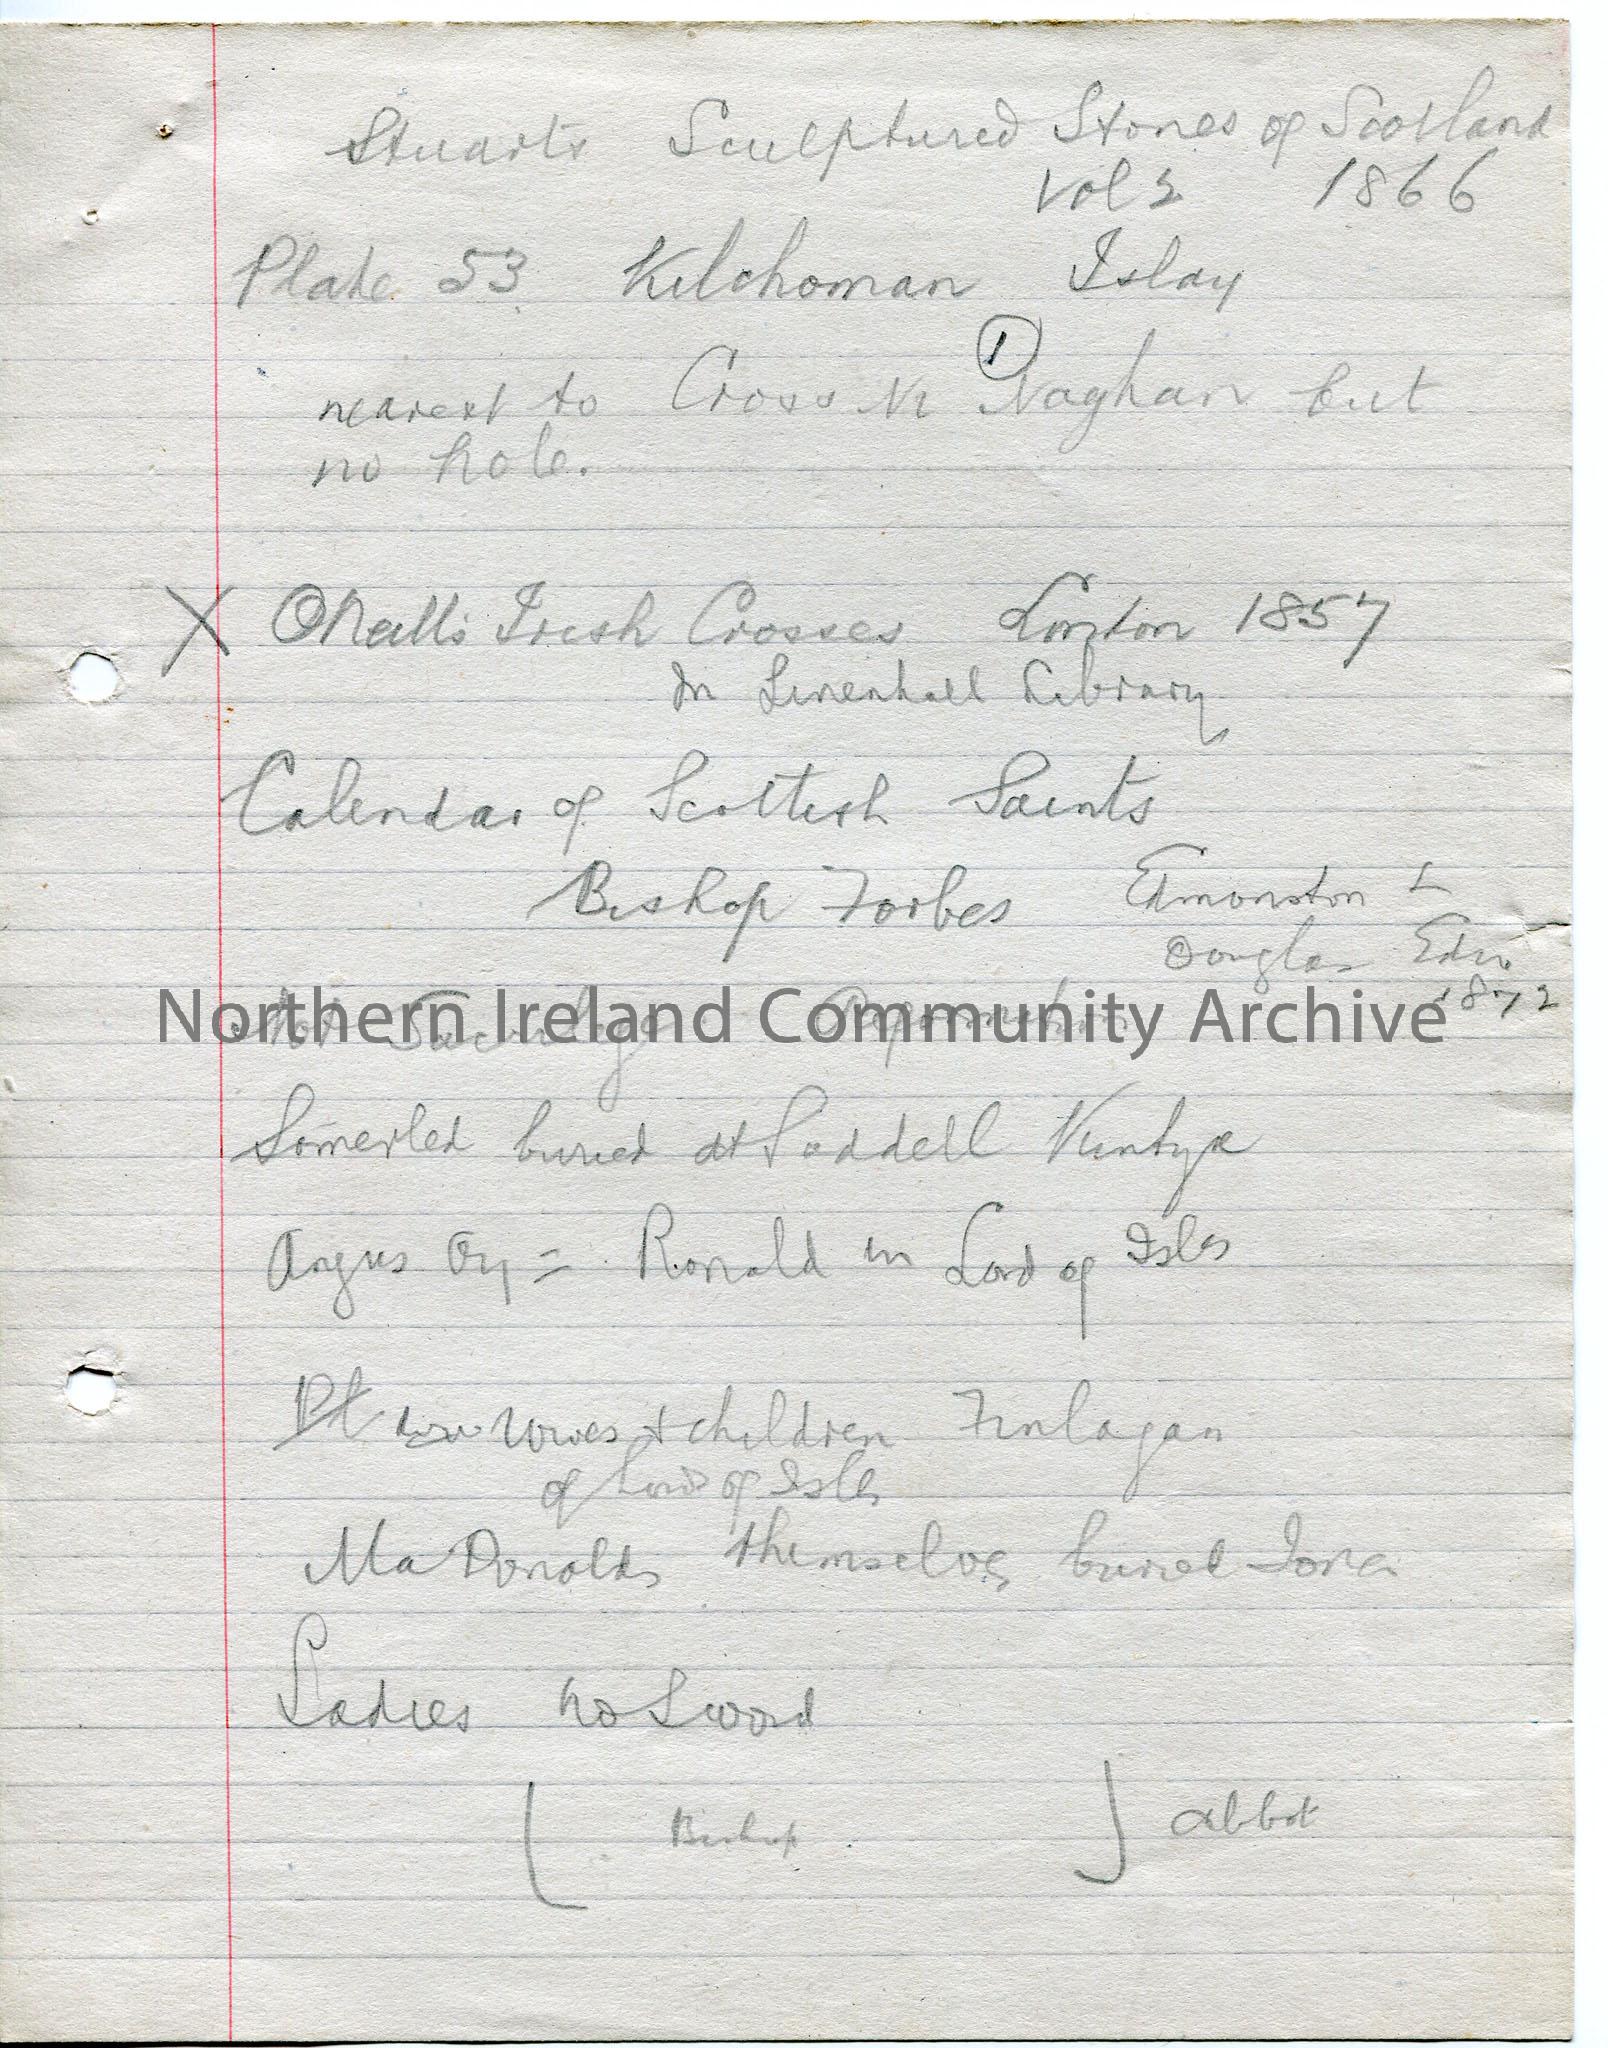 Stuarts Sculptured Stones of Scotland
Vol 2 1866
Plate 53 Kilchoman Islay
1
nearest to Cross Na Naghan but
no hole.
X ONeills Irish Crosses London 1857
In Linenhall Library
Calendar of Scottish Saints
Bishop Forbes Edmonston &
Douglas Edin
1872
Northern Ireland Community Archive
Reformation
Somerled buried at Saddell Kintyre
Angus Og = Ronald in Lord of Isles
wives & children Finlagan
of Lord of Isles
MacDonalds themselves buried Iona
Ladies no Sword
Bishop abbot